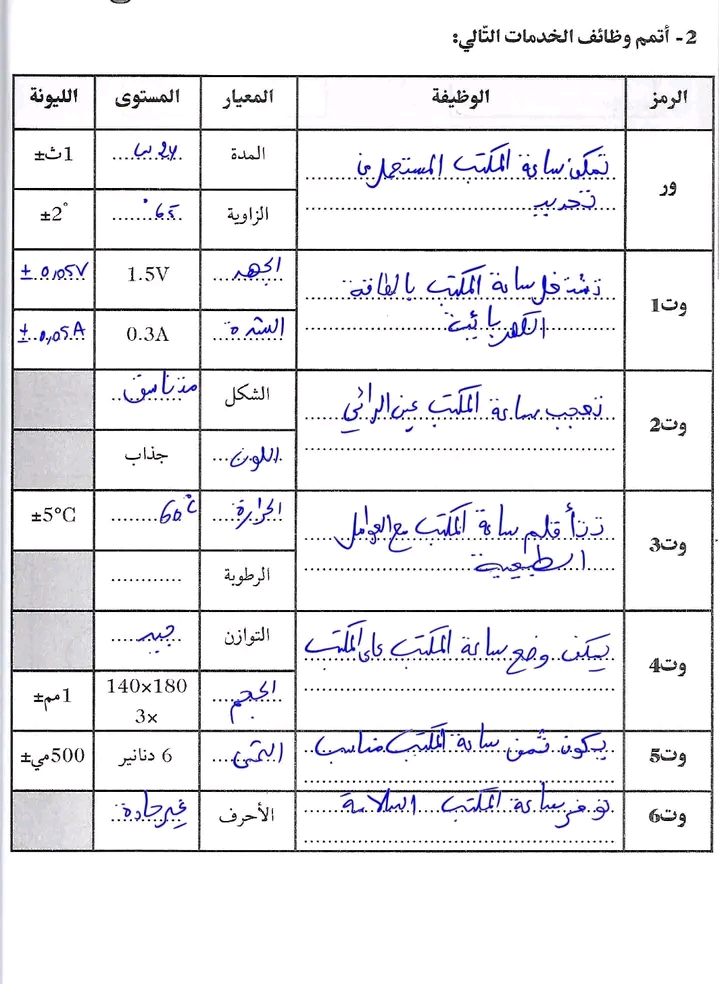 2- أتمم وظائف الخدمات التّالي:
الرمز الوظيفة المعيار المستوى الليونة
ور تمكن ساعة المكتب المستعمل من المدة ±1ث
تحديد الزاوية ±2°
وت1 تشتغل ساعة المكتب بالطاقة الجهد 1.5V ± 0,05V
الكهربائية الشدة 0.3A ± 0,05A
وت2 تعجب ساعة المكتب عين الرائي الشكل متناسق
اللون جذاب
وت3 تتأقلم ساعة المكتب مع العوامل الحرارة 60°C ±5°C
الطبيعية الرطوبة
وت4 يمكن وضع ساعة المكتب على المكتب التوازن جيد
الحجم 140×180 ±1مم
×3
وت5 يكون ثمن ساعة المكتب مناسب الثمن 6 دنانير ±500مي
وت6 توفر ساعة المكتب السلامة الأحرف غير حادة